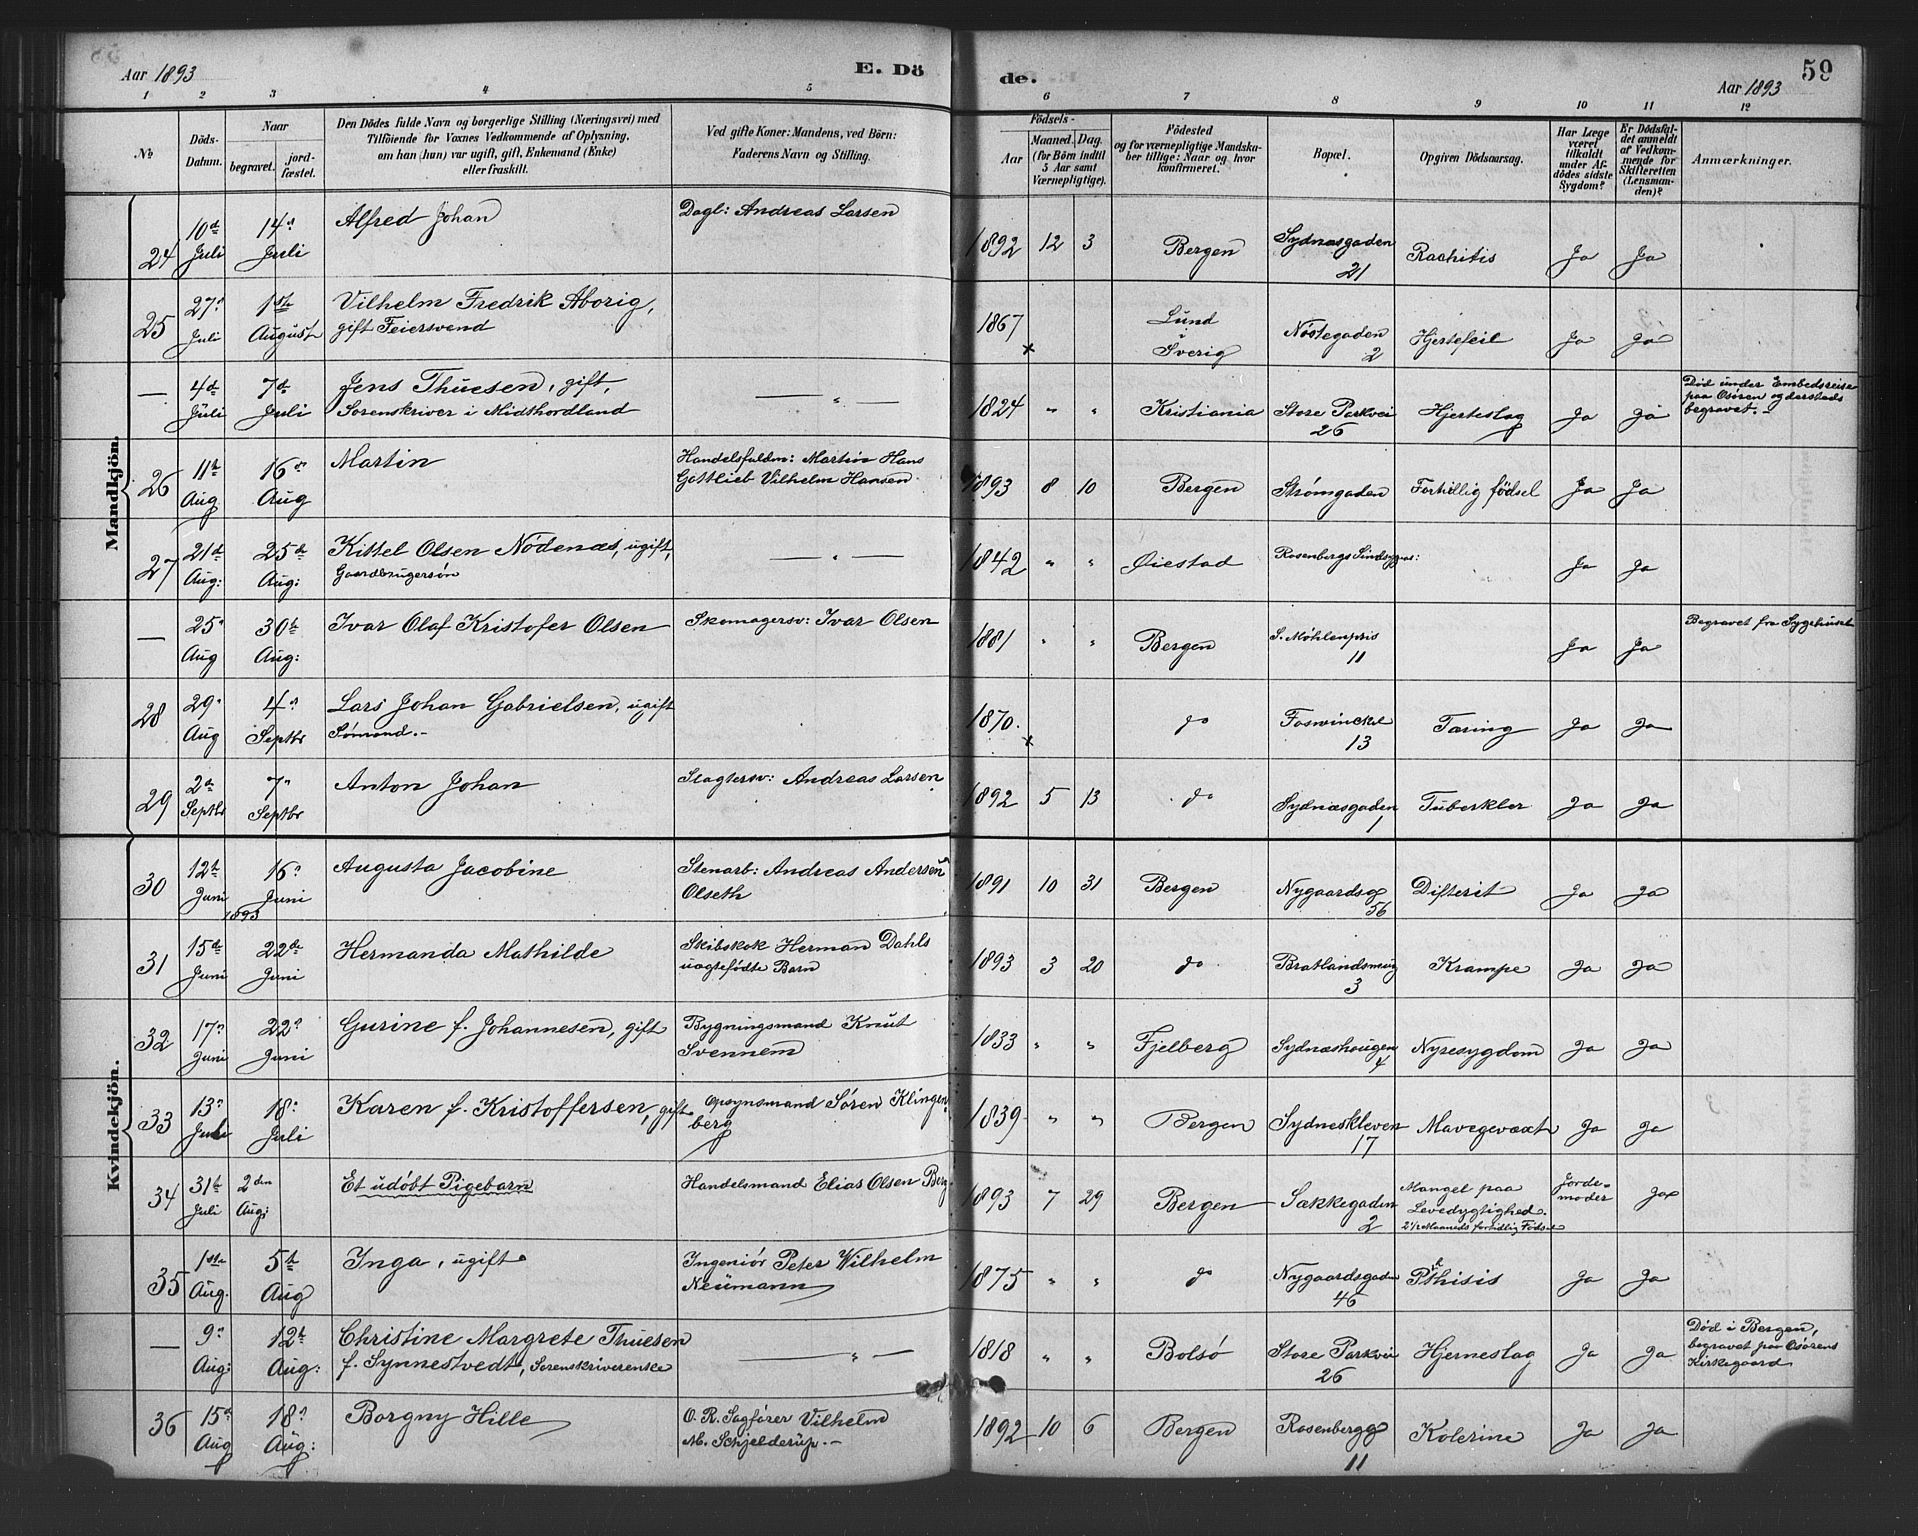 Aar 1893 E. Dö de. Aar 1893 59
1 2 3 4 5 6 7 8 9 10 11 12
No. Döds-Datum. Naar begravet. jordfæstet. Den Dödes fulde Navn og borgerlige Stilling (Næringsvei) med Tilföiende for Voxnes Vedkommende af Oplysning, om han (hun) var ugift, gift, Enkemand (Enke) eller fraskilt. Ved gifte Koner: Mandens, ved Börn: Faderens Navn og Stilling. Födsels- Aar Maaned. Dag. (for Börn indtil 5 Aar samt Værnepligtige). Födested og for værnepligtige Mandskaber tillige: Naar og hvor konfirmeret. Bopæl. Opgiven Dödsaarsag. Har Læge været tilkaldt under Afdödes sidste Sygdom? Er Dödsfaldet anmeldt af Vedkommende for Skifteretten (Lensmanden)? Anmærkninger.
Mandkjön.
24 10d Juli 14d Juli Alfred Johan Dagl: Andreas Larsen 1892 12 3 Bergen Sydnæsgaden 21 Rachitis Ja Ja
25 27d Juli 1ste August Vilhelm Fredrik Aborig, gift Feiersvend 1867 x Lund i Sverig Nöstegaden 2 Hjertefeil Ja Ja
— 4d Juli 7d Juli Jens Thuesen, gift, Sorenskriver i Midthordland — " — 1824 " " Kristiania Store Parkvei 26 Hjerteslag Ja Ja Död under Embedsreise paa Osören og dersteds begravet.-
26 11te Aug 16d Aug Martin Handelsfuldm: Martin Hans Gottlieb Vilhelm Hansen 1893 8 10 Bergen Strömgaden Fortidlig födsel Ja Ja
27 21de Aug: 25de Aug: Kittel Olsen Nödenæs, ugift, Gaardbrugersön — " — 1842 " " Öiestad Rosenbergs Sindssygeas: Ja Ja
— 25d Aug 30te Aug: Ivar Olaf Kristofer Olsen Skomagersv: Ivar Olsen 1881 " " Bergen S. Möhlenpris 11 Ja Ja Begravet fra Sygehuset
28 29d Aug 4d Septbr Lars Johan Gabrielsen, ugift Sömand.- 1870. x do Foswinckel 13 Tæring Ja Ja
29 2d Septbr 7d Septbr Anton Johan Slagtersv: Andreas Larsen 1892 5 13 do Sydnæsgaden 1 Tuberkler Ja Ja
Kvindekjön.
30 12te Juni 1893 16d Juni Augusta Jacobine Stenarb: Andreas Andersen Olseth 1891 10 31 Bergen Nygaardsg 56 Difterit Ja Ja
31 15de Juni 22de Juni Hermanda Mathilde Skibskok Herman Dahls uægtefödte Barn 1893 3 20 do Bratlandsmug 3 Krampe Ja Ja
32 17d Juni 22d Juni Gurine f. Johannesen, gift Bygningsmand Knut Svennem 1833 " " Fjelberg Sydnæshougen 4 Nyresygdom Ja Ja
33 13d Juli 18d Juli Karen f. Kristoffersen, gift Opsynsmand Sören Klingenberg 1839 " " Bergen Sydneskleven 17 Mavegevæxt Ja Ja
34 31te Juli 2den Aug: Et udöbt Pigebarn Handelsmand Elias Olsen Berg 1893 7 29 Bergen Sækkegaden 2 Mangel paa Levedygtighed. 2½ Maaneds fortidlig Födsel Jordemoder Ja
35 1ste Aug. 5te Aug Inga, ugift Ingeniör Peter Wilhelm Neümann 1875 " " do Nygaardsgaden 46 Pthisis Ja Ja
— 9d Aug: 12te Aug: Christine Margrete Thuesen f. Synnestvedt, Sorenskriverenke — " — 1818 " " Bolsö Store Parkvei 26 Hjerneslag Ja Ja Död i Bergen, begravet paa Osörens Kirkegaard
36 15d Aug 18d Aug: Borgny Hille O. R. Sagförer Vilhelm M. Schjelderup.- 1892 10 6 Bergen Rosenbergg 11 Kolerine Ja Ja